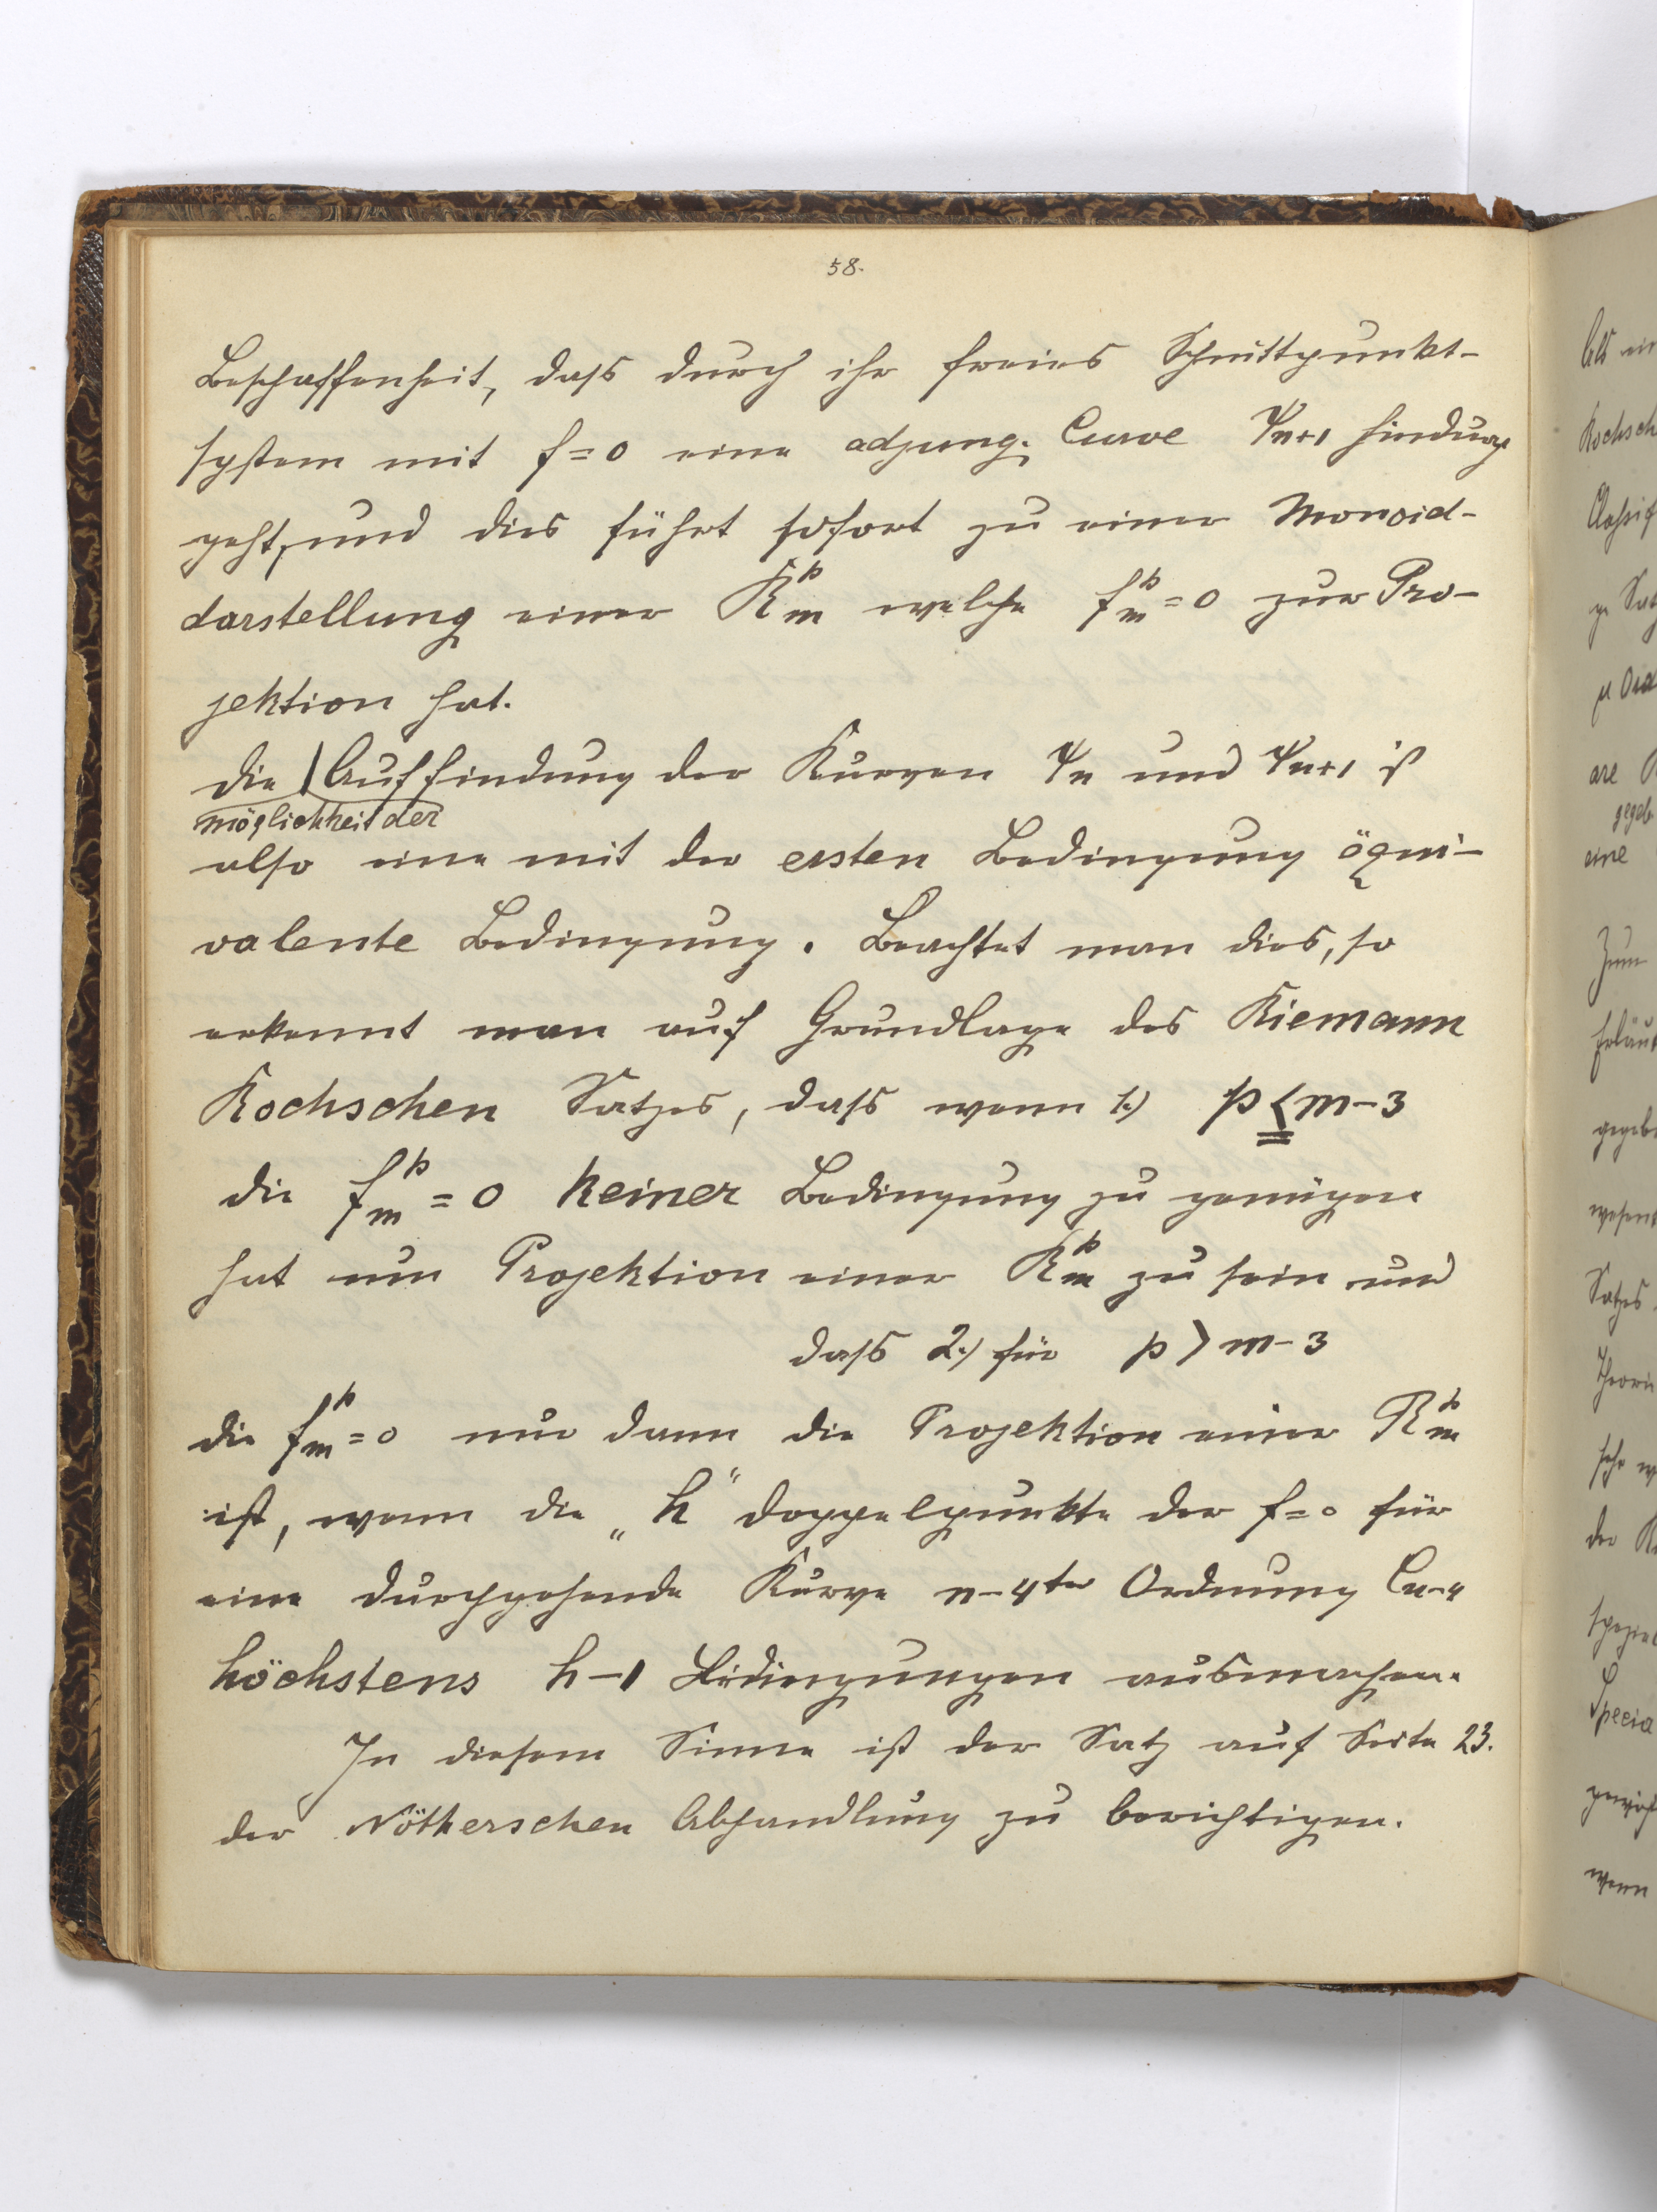 58.
Beschaffenheit, dass durch ihr freies Schnittpunkt-
system mit f=0 eine adjung. Curve ψn+1 hindurch
geht, und dies führt sofort zu einer Monoid-
darstellung einer R^p_m welche f^p_m=0 zur Pro-
jektion hat.
Die | Auffindung der Kurven ψn und ψn+1 ist
möglichkeit der
also eine mit der ersten Bedingung äqui-
valente Bedingung. Beachtet man dies, so
erkennt man auf Grundlage des Riemann
Rochschen Satzes, dass wenn 1.) p ≦ m-3
die f^p_m=0 keiner Bedingung zu genügen
hat um Projektion einer R^p_m zu sein und
dass 2.) für p > m-3
die f^p_m=0 nur dann die Projektion einer R^p_m
ist, wenn die „h" Doppelpunkte der f=0 für
eine durchgehende Kurve n-4ter Ordnung Cn-4
höchstens h-1 Bedingungen ausmachen.
In diesem Sinne ist der Satz auf Seite 23.
der Nötherschen Abhandlung zu berichtigen.
als ein
Rochsch
Classif
Satz
gegeb.
eine
Zum
Erläut
gegeb
wesent
Satzes
Theorie
sehr w
der K
spezial
Specia
wenn